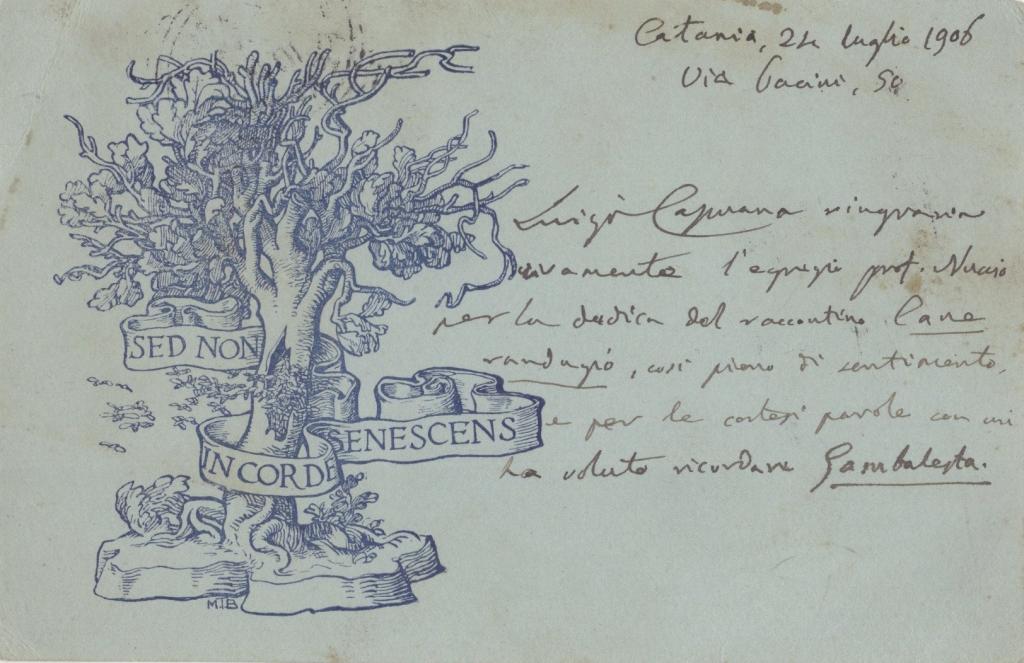 Catania, 24 luglio 1906
Via Pacini, 50
Luigi Capuana ringrazia
vivamente l'egregio prof. Nuccio
per la dedica del raccontino Cane
randagio, così pieno di sentimento,
e per le cortesi parole con cui
ha voluto ricordare Gambalesta.
SED NON
IN CORDE
SENESCENS
M.T.B